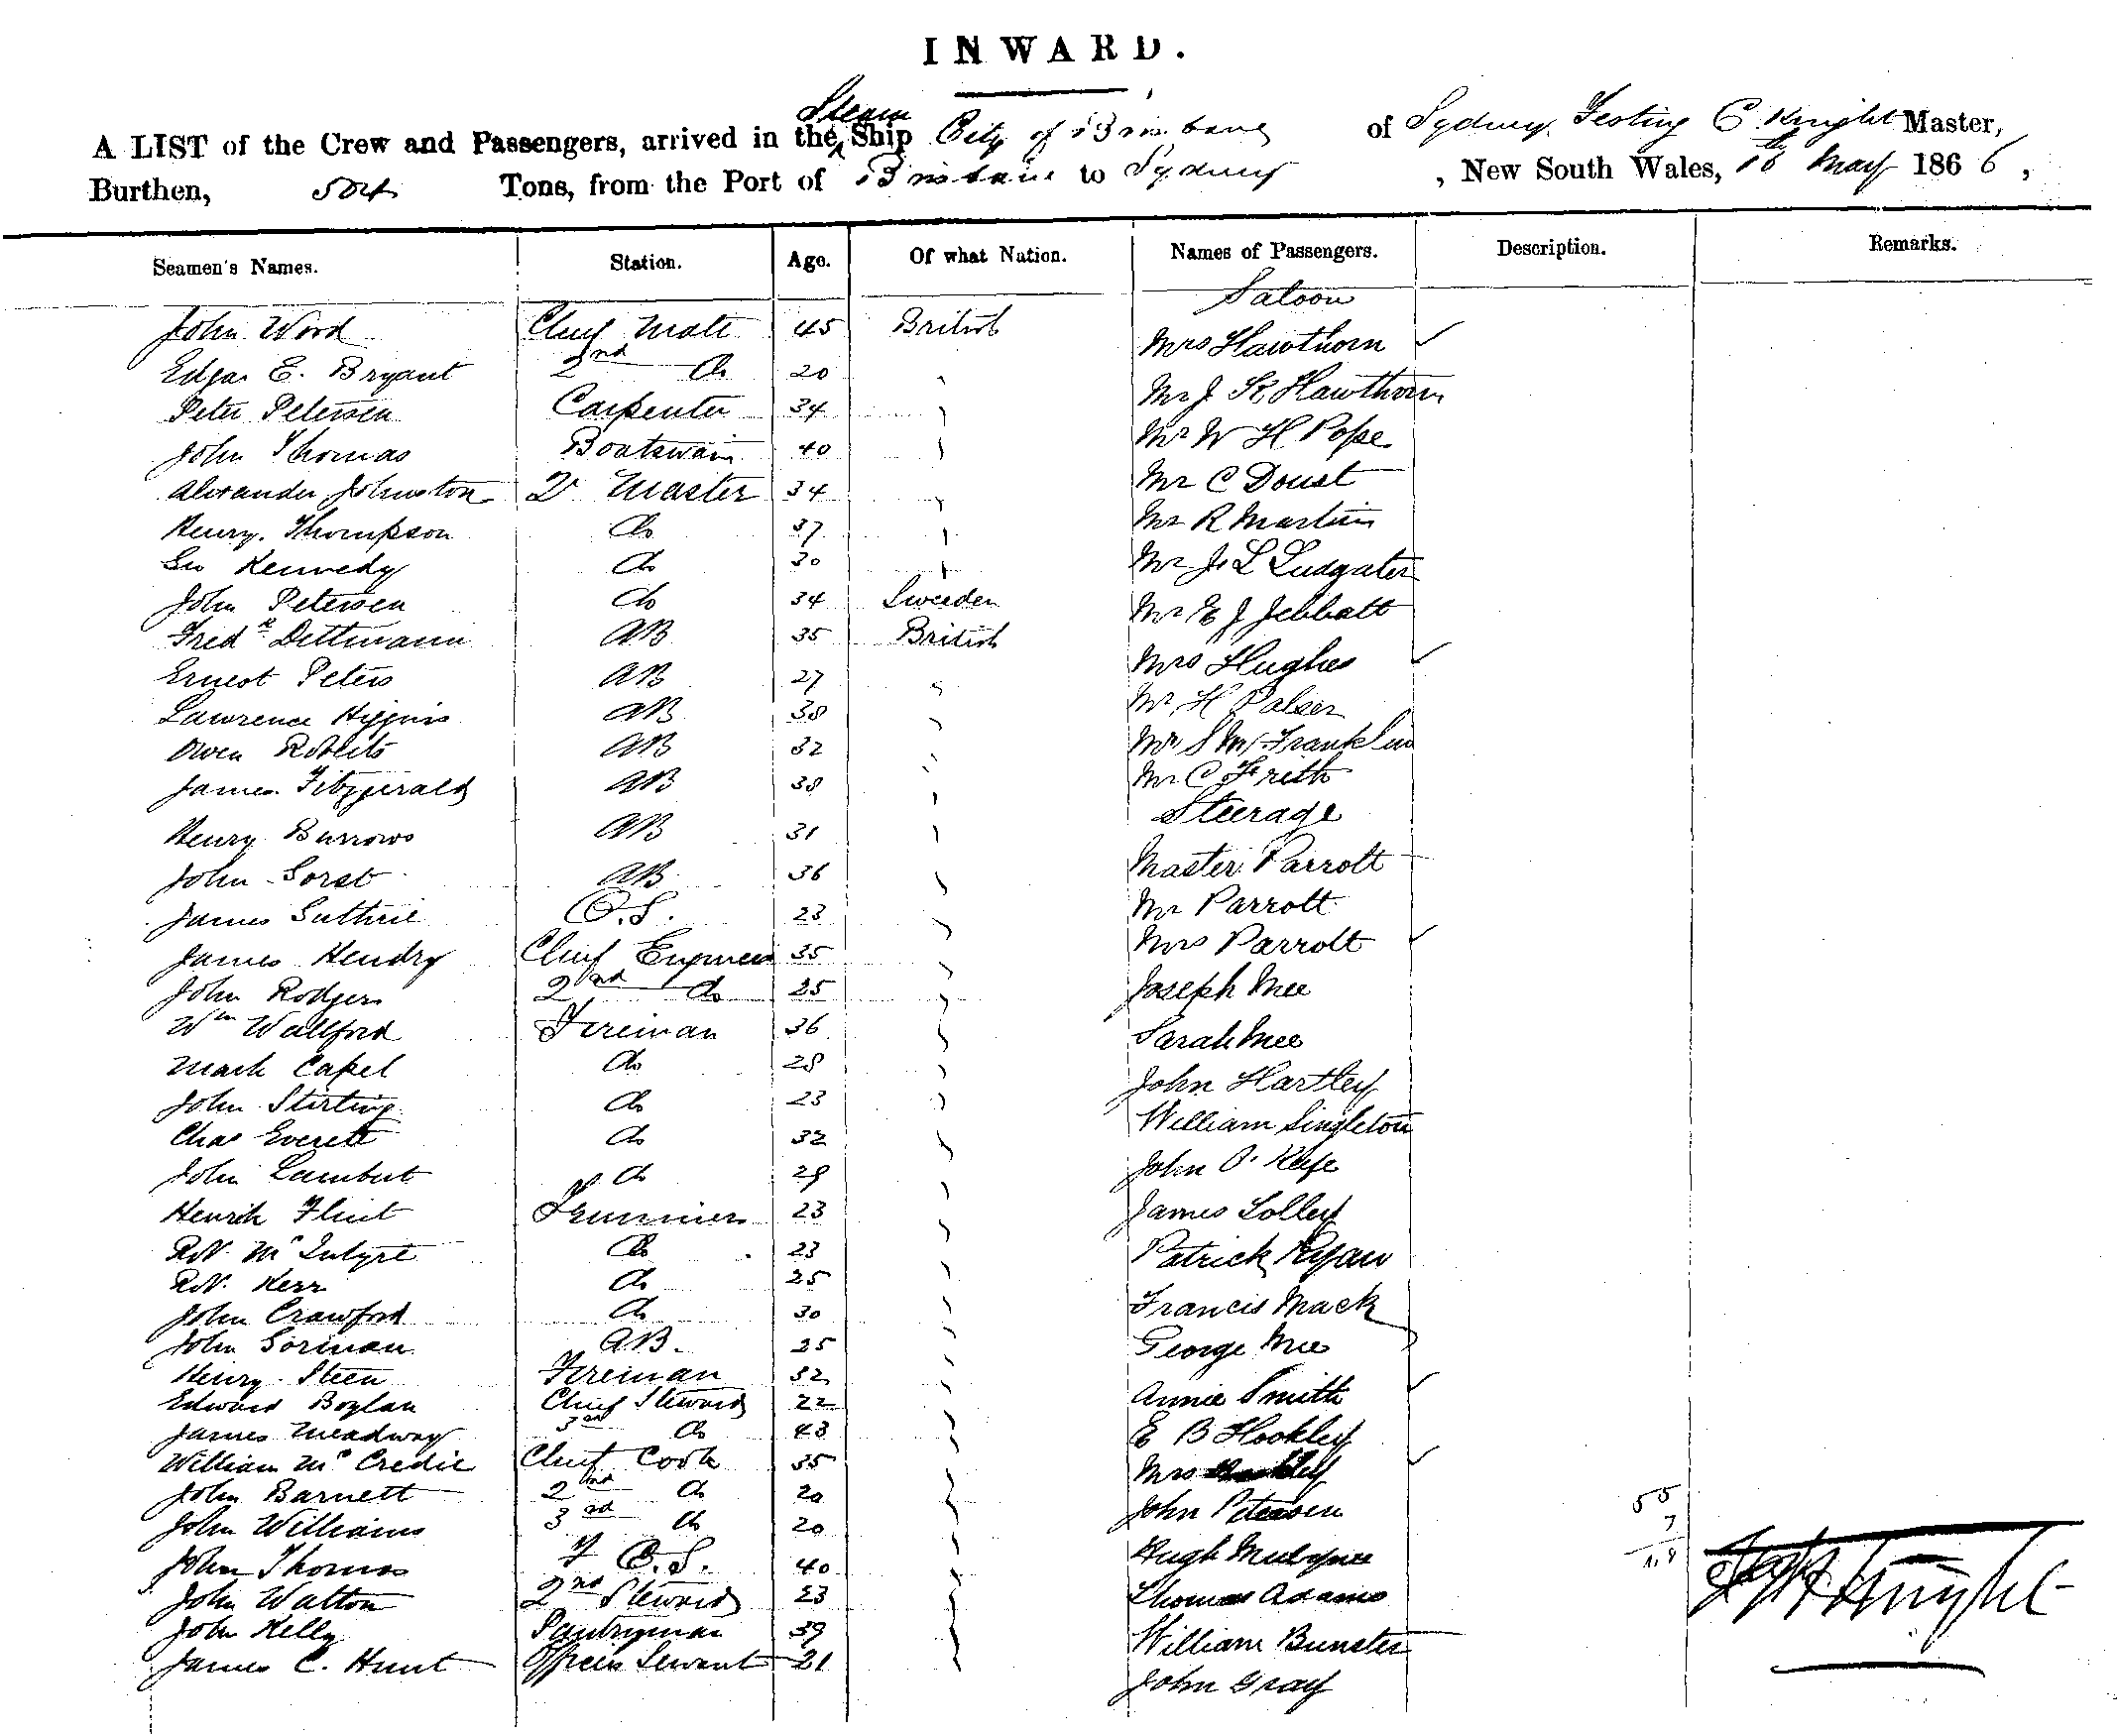 INWARD.
A LIST of the Crew and Passengers, arrived in the Steam Ship City of Brisbane of Sydney, C Knight Master,
Burthen, 504 Tons, from the Port of Brisbane to Sydney, New South Wales, 16th May 1866,
Seamen's Names. Station. Age. Of what Nation. Names of Passengers. Description. Remarks.
Saloon
John Wood Chief Mate 45 British Mrs Hawthorn
Edgar E. Bryant 2nd Do 20 Mr J R Hawthorn
Peter Petersen Carpenter 34 Mr W H Pope
John Thomas Boatswain 40 Mr C Doust
Alexander Johnston Q Master 34 Mr R Martin
Henry Thompson Do 37 Mr J. L Ludgater
Geo Kennedy Do 30 Mr E J Jebbatt
John Petersen Do 34 Sweden Mrs Hughes
Fredk Dittmann AB 35 British Mr H Palser
Ernest Peters AB 27 Mr S M Franklin
Lawrence Higgins AB 38 Mr C Frith
Owen Roberts AB 32 Steerage
James Fitzgerald AB 38 Master Parrott
Henry Burrows AB 31 Mr Parrott
John AB 36 Mrs Parrott
James Guthrie O.S. 23 Joseph Mee
James Hendry Chief Engineer 35 Sarah Mee
John Rodgers 2nd Do 25 John Hartley
Wm Wallford Fireman 36 William Singleton
Mark Capel Do 28 John O. Keefe
John Stirling Do 23 James Lolley
Chas Everett Do 32 Patrick Ryan
John Lambert Do 29 Francis Mack
Henrik Flint Trimmer 23 George Mee
Rot. McIntyre Do 23 Annie Smith
Rot. Kerr Do 25 E B Hookley
John Crawford Do 30 Mrs
John Gorman AB. 25 John Petersen
Henry Steen Fireman 32 Hugh
Edward Boylan Chief Steward 22 Thomas Adams
James Meadway 3rd Do 43 William Bunster
William McCredie Chief Cook 35 John Gray
John Barnett 2nd Do 20
John Williams 3rd Do 20
John Thomas F C.S. 40
John Walton 2nd Steward 23
John Kelly Pantryman 39
James C. Hunt Officers Servant 21
55
7
Knight